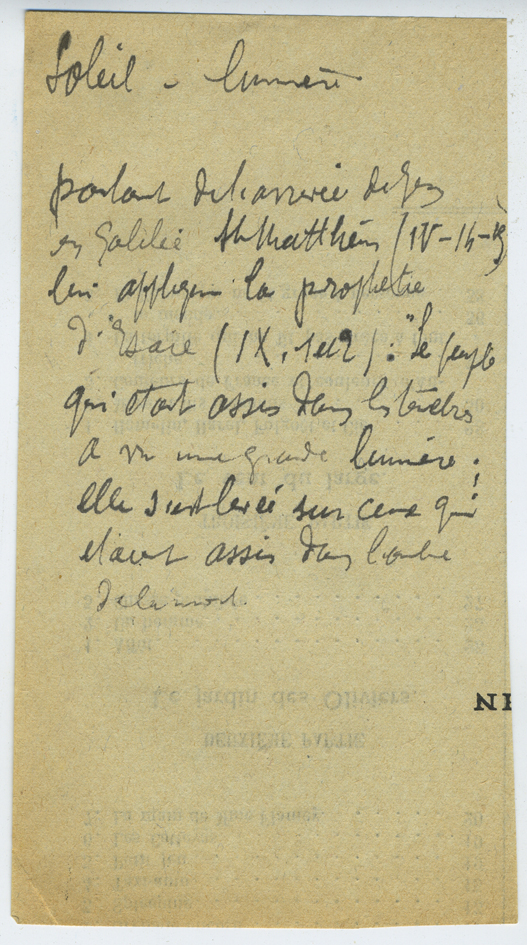 Soleil - lumière
parlant de l'arrivée de Jésus
en Galilée St Matthieu (IV-14-15)
lui applique la prophétie
d'Esaïe (IX, 1 et 2) : "le peuple
qui était assis dans les ténèbres
a vu une grande lumière ;
elle s'est levée sur ceux qui
étaient assis dans l'ombre
de la mort.
Le jardin des Oliviers.
DEUXIÈME PARTIE